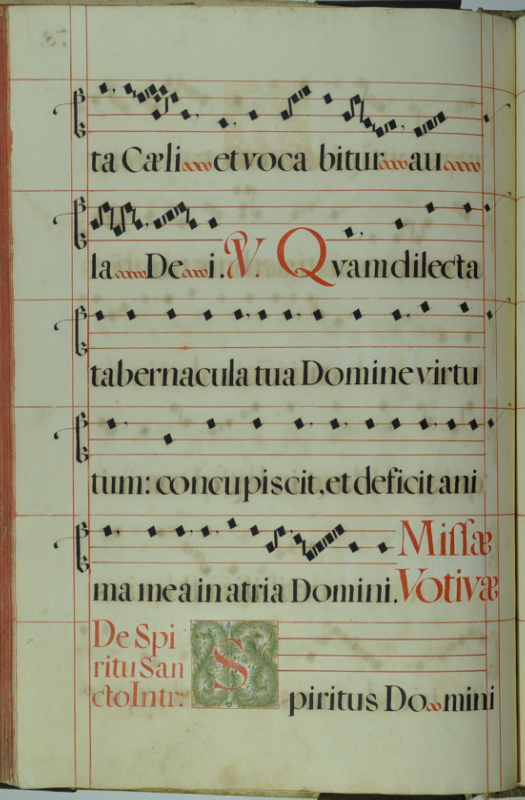 ta Cæli et voca bitur au
la De i. V. Quam dilecta
tabernacula tua Domine virtu
tum: concupiscit, et deficit ani
ma mea in atria Domini. Missæ
Votivæ
De Spi
ritu San
cto Intr:
Spiritus Domini